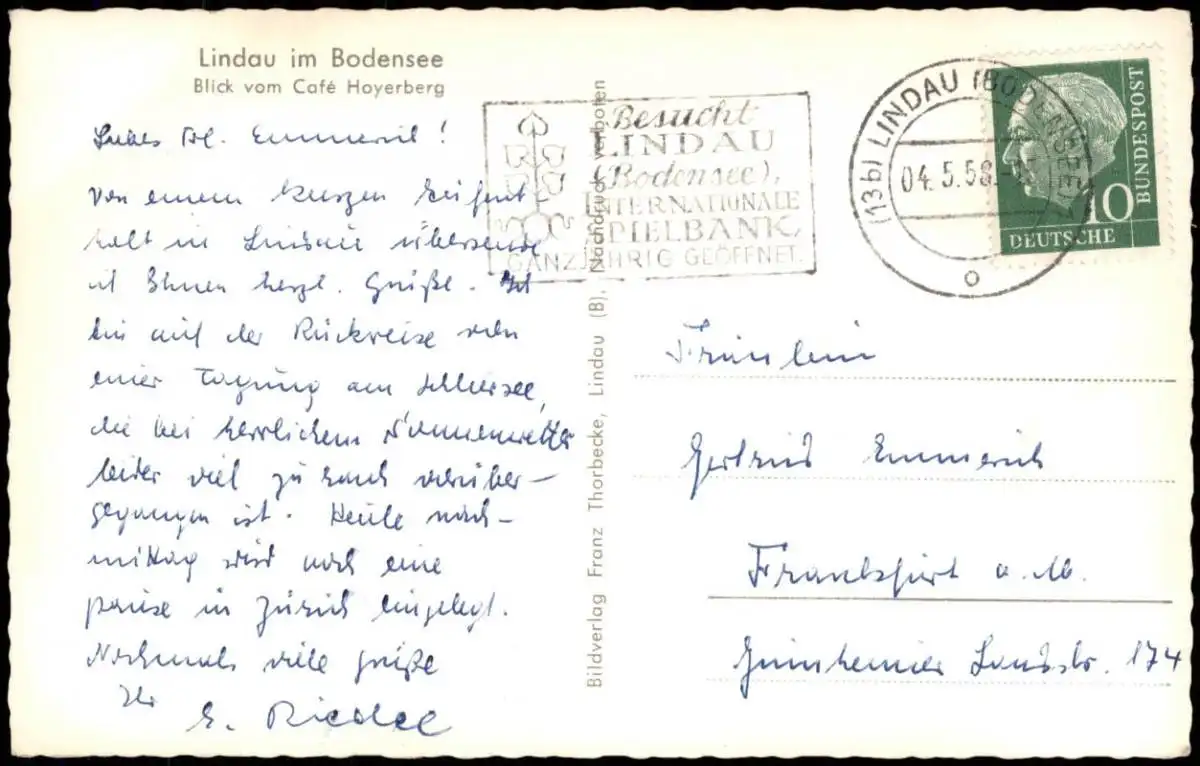 Lindau im Bodensee
Blick vom Café Hoyerberg
Liebes Frl. Emmerich!
Von einem kurzen Aufent-
halt in Lindau übersende
ich Ihnen herzl. Grüße. Ich
bin auf der Rückreise von
einer Tagung am Schliersee,
die bei herrlichem Sonnenwetter
leider viel zu rasch vorüber-
gegangen ist. Heute nach-
mittag wird noch eine
Pause in Zürich eingelegt.
Nochmals viele Grüße
Ihr
E. Riedel
Bildverlag Franz Thorbecke, Lindau (B). Nachdruck verboten
Besucht
LINDAU
(Bodensee),
INTERNATIONALE
SPIELBANK,
GANZJÄHRIG GEÖFFNET.
(13b) LINDAU (BODENSEE)
04.5.58.
10
DEUTSCHE
BUNDESPOST
Fräulein
Gertrud Emmerich
Frankfurt a. M.
Ginnheimer Landstr. 174